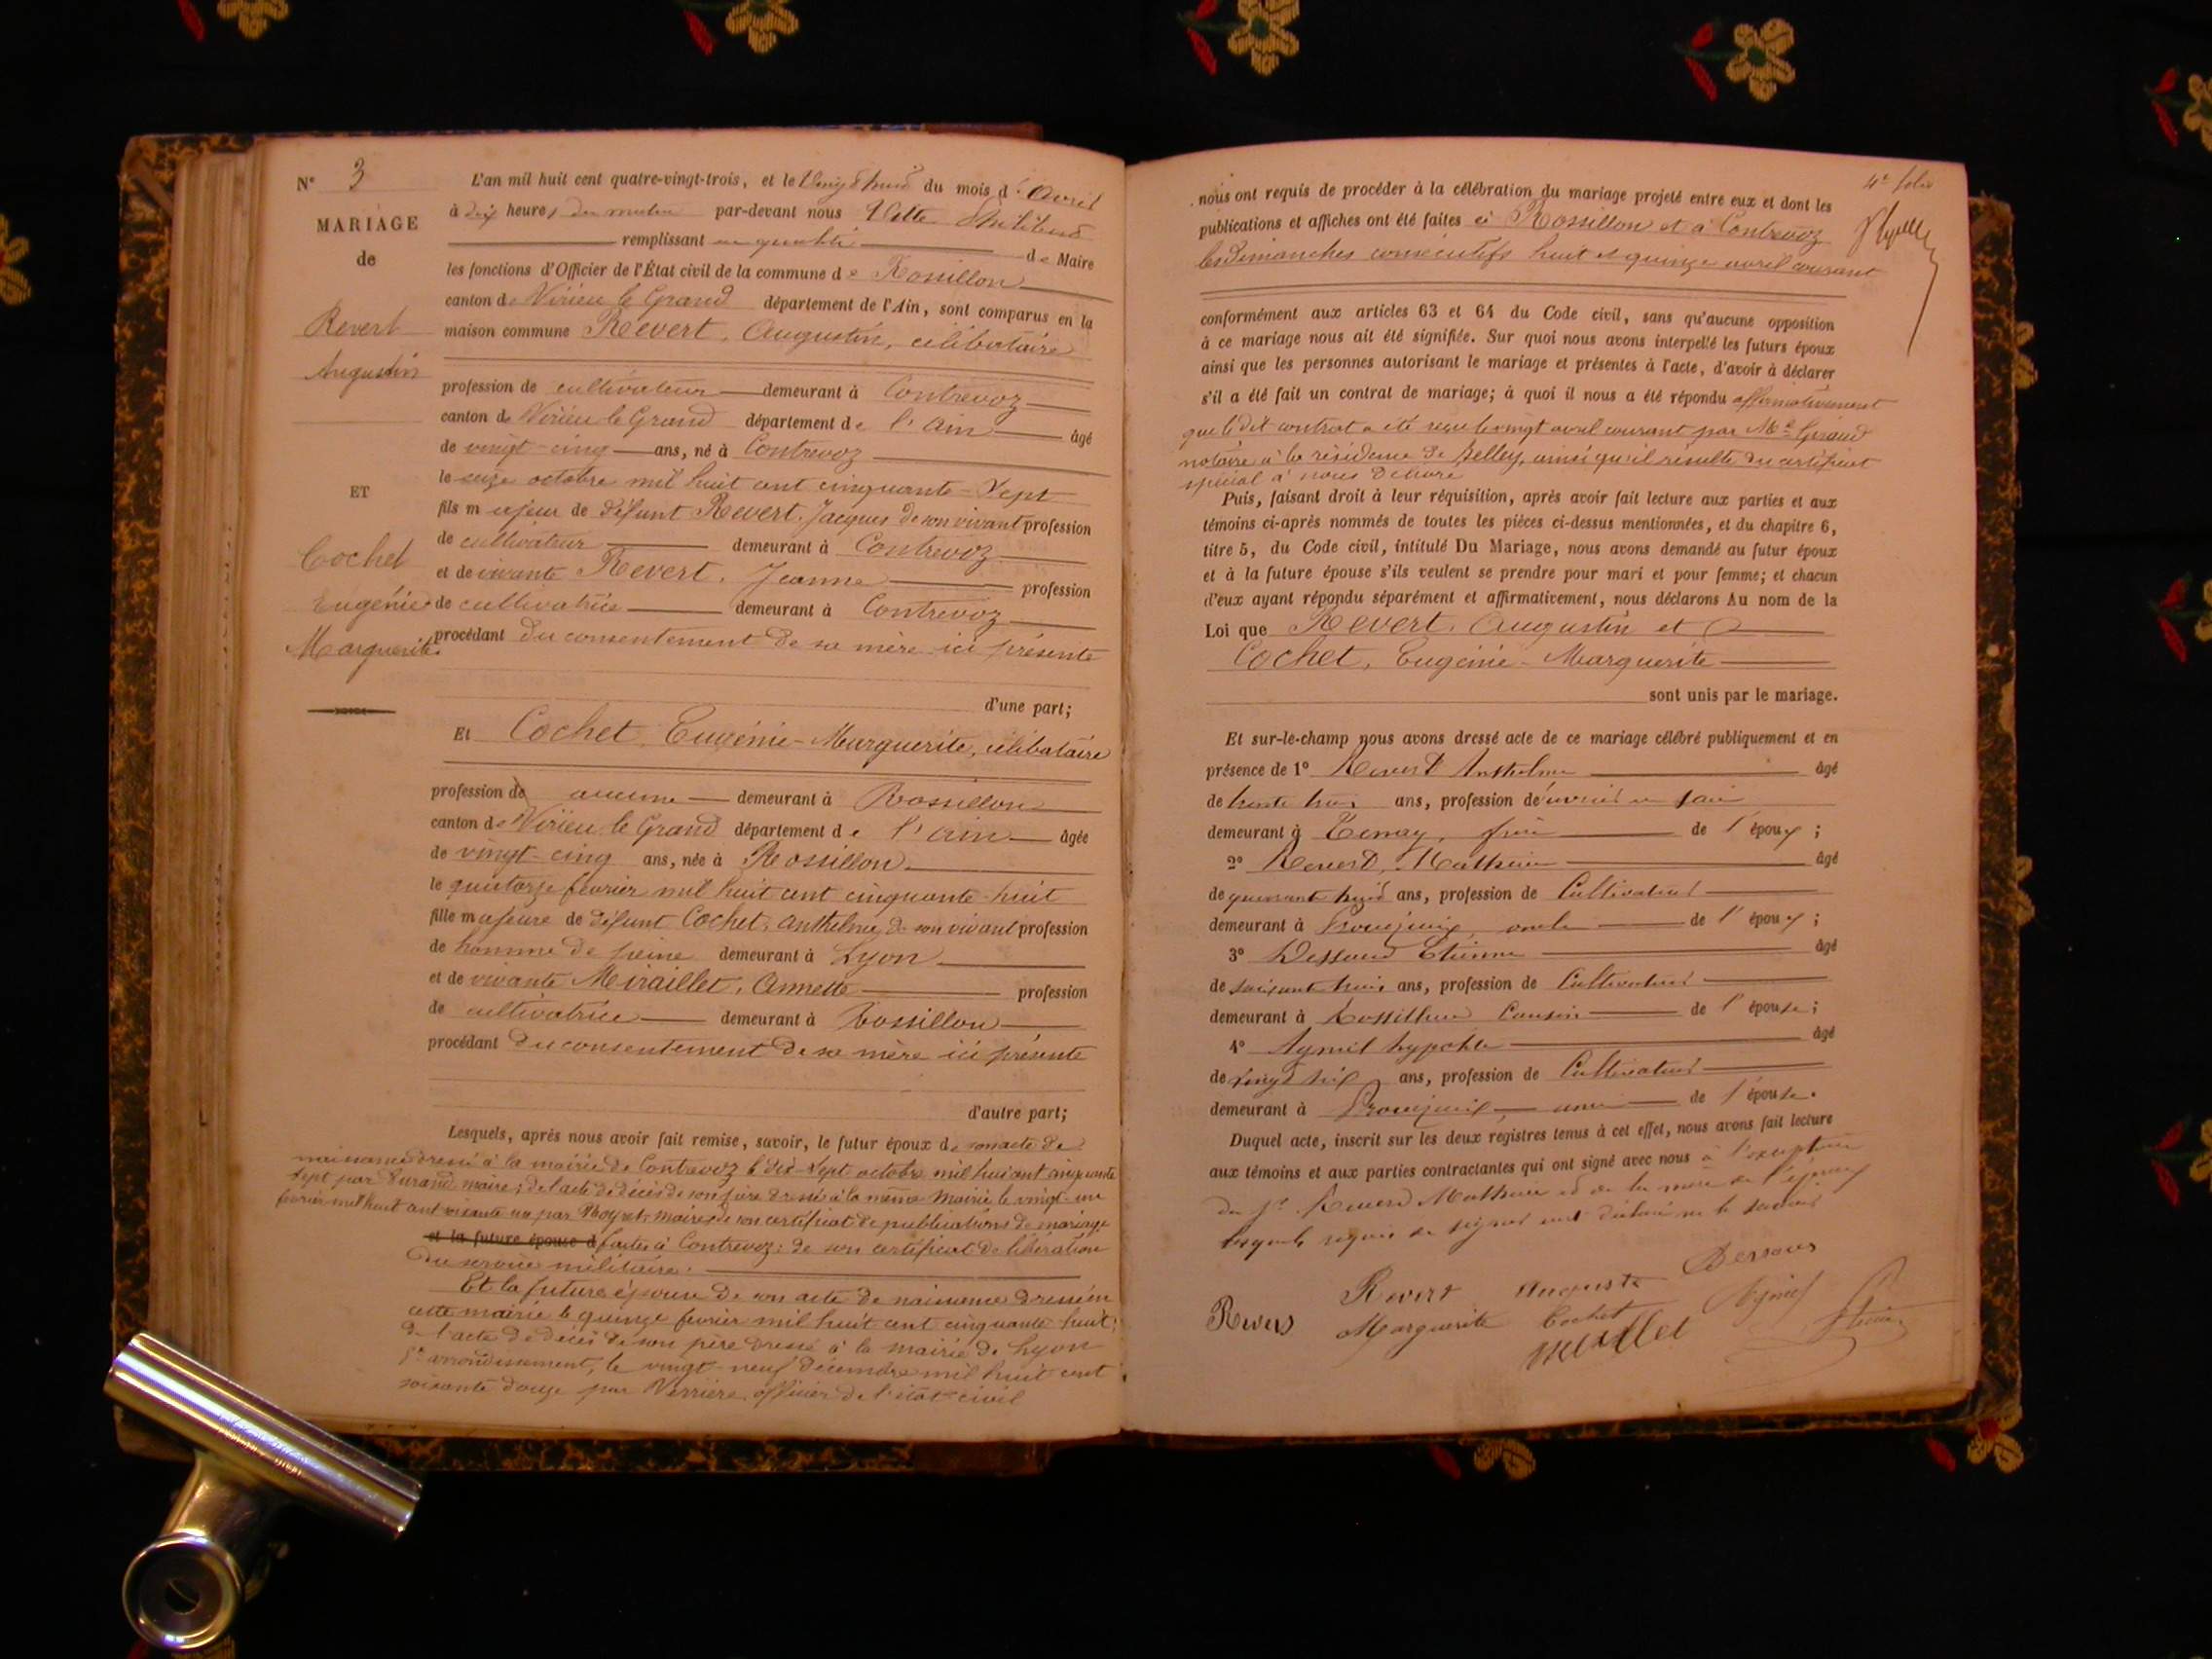 N° 3
MARIAGE
de
Revert
Augustin
ET
Cochet
Eugénie
Marguerite
L'an mil huit cent quatre-vingt-trois, et le du mois d'avril
à dix heures du matin par-devant nous
remplissant en qualité de Maire
les fonctions d'Officier de l'État civil de la commune de Rossillon
canton de Virieu le Grand département de l'Ain, sont comparus en la
maison commune Revert, Augustin, célibataire
profession de cultivateur demeurant à Contrevoz
canton de Virieu le Grand département de l'Ain âgé
de vingt-cinq ans, né à Contrevoz
le seize octobre mil huit cent cinquante-sept
fils majeur de défunt Revert, Jacques de son vivant profession
de cultivateur demeurant à Contrevoz
et de vivante Revert, Jeanne profession
de cultivatrice demeurant à Contrevoz
procédant du consentement de sa mère ici présente
d'une part;
Et Cochet Eugénie-Marguerite, célibataire
profession de aucune demeurant à Rossillon
canton de Virieu le Grand département de l'Ain âgée
de vingt-cinq ans, née à Rossillon
le quatorze février mil huit cent cinquante-huit
fille majeure de défunt Cochet, Anthelme, de son vivant profession
de homme de peine demeurant à Lyon
et de vivante Miraillet, Annette profession
de cultivatrice demeurant à Rossillon
procédant du consentement de sa mère ici présente
d'autre part;
Lesquels, après nous avoir fait remise, savoir, le futur époux de son acte de
naissance dressé à la mairie de Contrevoz le dix-sept octobre mil huit cent cinquante
sept par Durand maire; de l'acte de décès de son père dressé à la même Mairie le vingt-un
février mil huit cent soixante un par maire; de son certificat de publications de mariage
et la future épouse d faites à Contrevoz; de son certificat de libération
du service militaire.
Et la future épouse de son acte de naissance dressé en
cette mairie le quinze février mil huit cent cinquante huit;
de l'acte de décès de son père dressé à la mairie de Lyon
arrondissement, le vingt-neuf décembre mil huit cent
soixante douze par Verrière officier de l'état-civil
4e folio
nous ont requis de procéder à la célébration du mariage projeté entre eux et dont les
publications et affiches ont été faites à Rossillon et à Contrevoz
les dimanches consécutifs huit et quinze avril courant
conformément aux articles 63 et 64 du Code civil, sans qu'aucune opposition
à ce mariage nous ait été signifiée. Sur quoi nous avons interpellé les futurs époux
ainsi que les personnes autorisant le mariage et présentes à l'acte, d'avoir à déclarer
s'il a été fait un contrat de mariage; à quoi il nous a été répondu affirmativement
que le dit contrat a été reçu le vingt avril courant par Me
notaire à la résidence de Belley, ainsi qu'il résulte du certificat
spécial à nous délivré
Puis, faisant droit à leur réquisition, après avoir fait lecture aux parties et aux
témoins ci-après nommés de toutes les pièces ci-dessus mentionnées, et du chapitre 6,
titre 5, du Code civil, intitulé Du Mariage, nous avons demandé au futur époux
et à la future épouse s'ils veulent se prendre pour mari et pour femme; et chacun
d'eux ayant répondu séparément et affirmativement, nous déclarons Au nom de la
Loi que Revert, Augustin et
Cochet, Eugénie-Marguerite
sont unis par le mariage.
Et sur-le-champ nous avons dressé acte de ce mariage célébré publiquement et en
présence de 1° Revert Anthelme âgé
de trente trois ans, profession d'ouvrier en soie
demeurant à Tenay, frère de l'époux;
2° Revert, Mathieu âgé
de quarante huit ans, profession de Cultivateur
demeurant à oncle de l'époux;
3° Etienne âgé
de soixante trois ans, profession de Cultivateur
demeurant à Rossillon Cousin de l'épouse;
4° âgé
de vingt six ans, profession de Cultivateur
demeurant à ami de l'épouse.
Duquel acte, inscrit sur les deux régistres tenus à cet effet, nous avons fait lecture
aux témoins et aux parties contractantes qui ont signé avec nous à l'exception
du Sr Revert Mathieu et de la mère de l'époux
lesquels requis de signer ont déclaré ne le savoir
Revert Revert Auguste
Marguerite Cochet